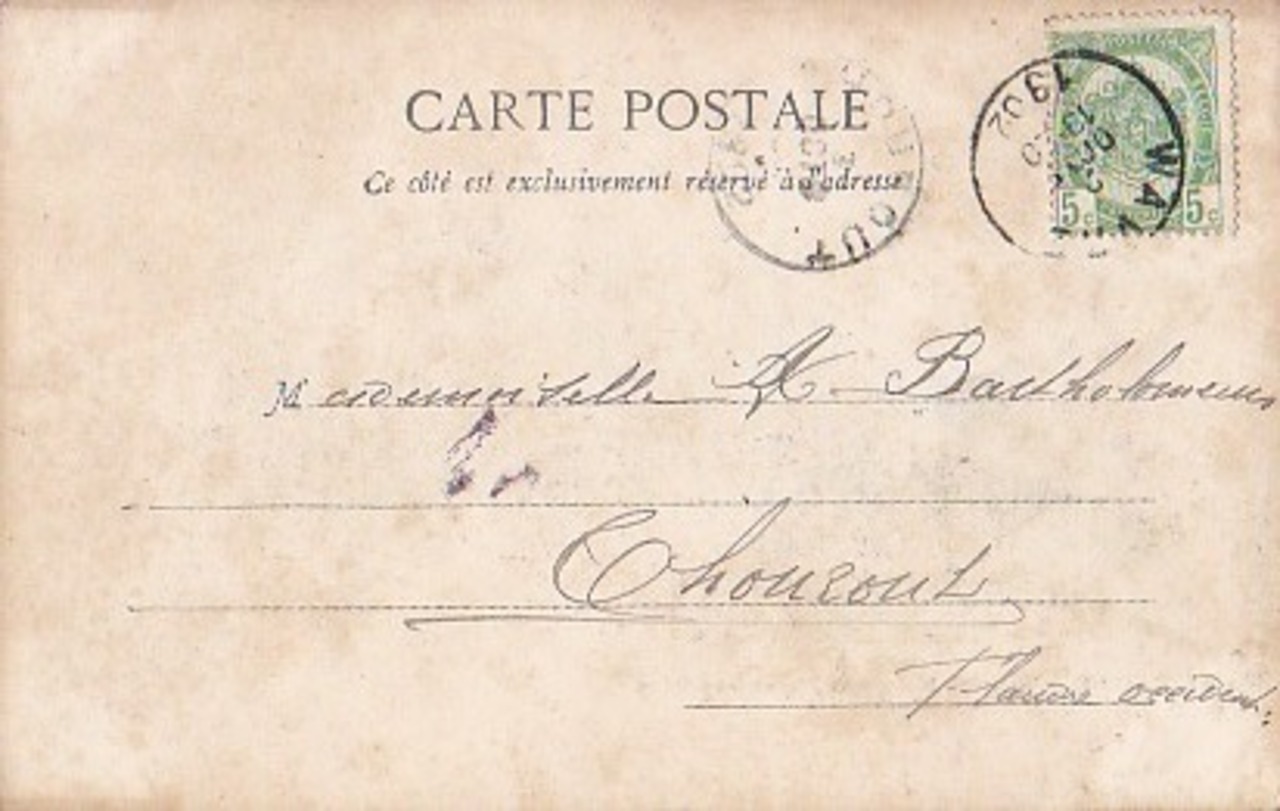 CARTE POSTALE
Ce côté est exclusivement réservé à l'adresse
1902
5c 5c
Mademoiselle A Bartholomeus
Thourout
Flandre occident.